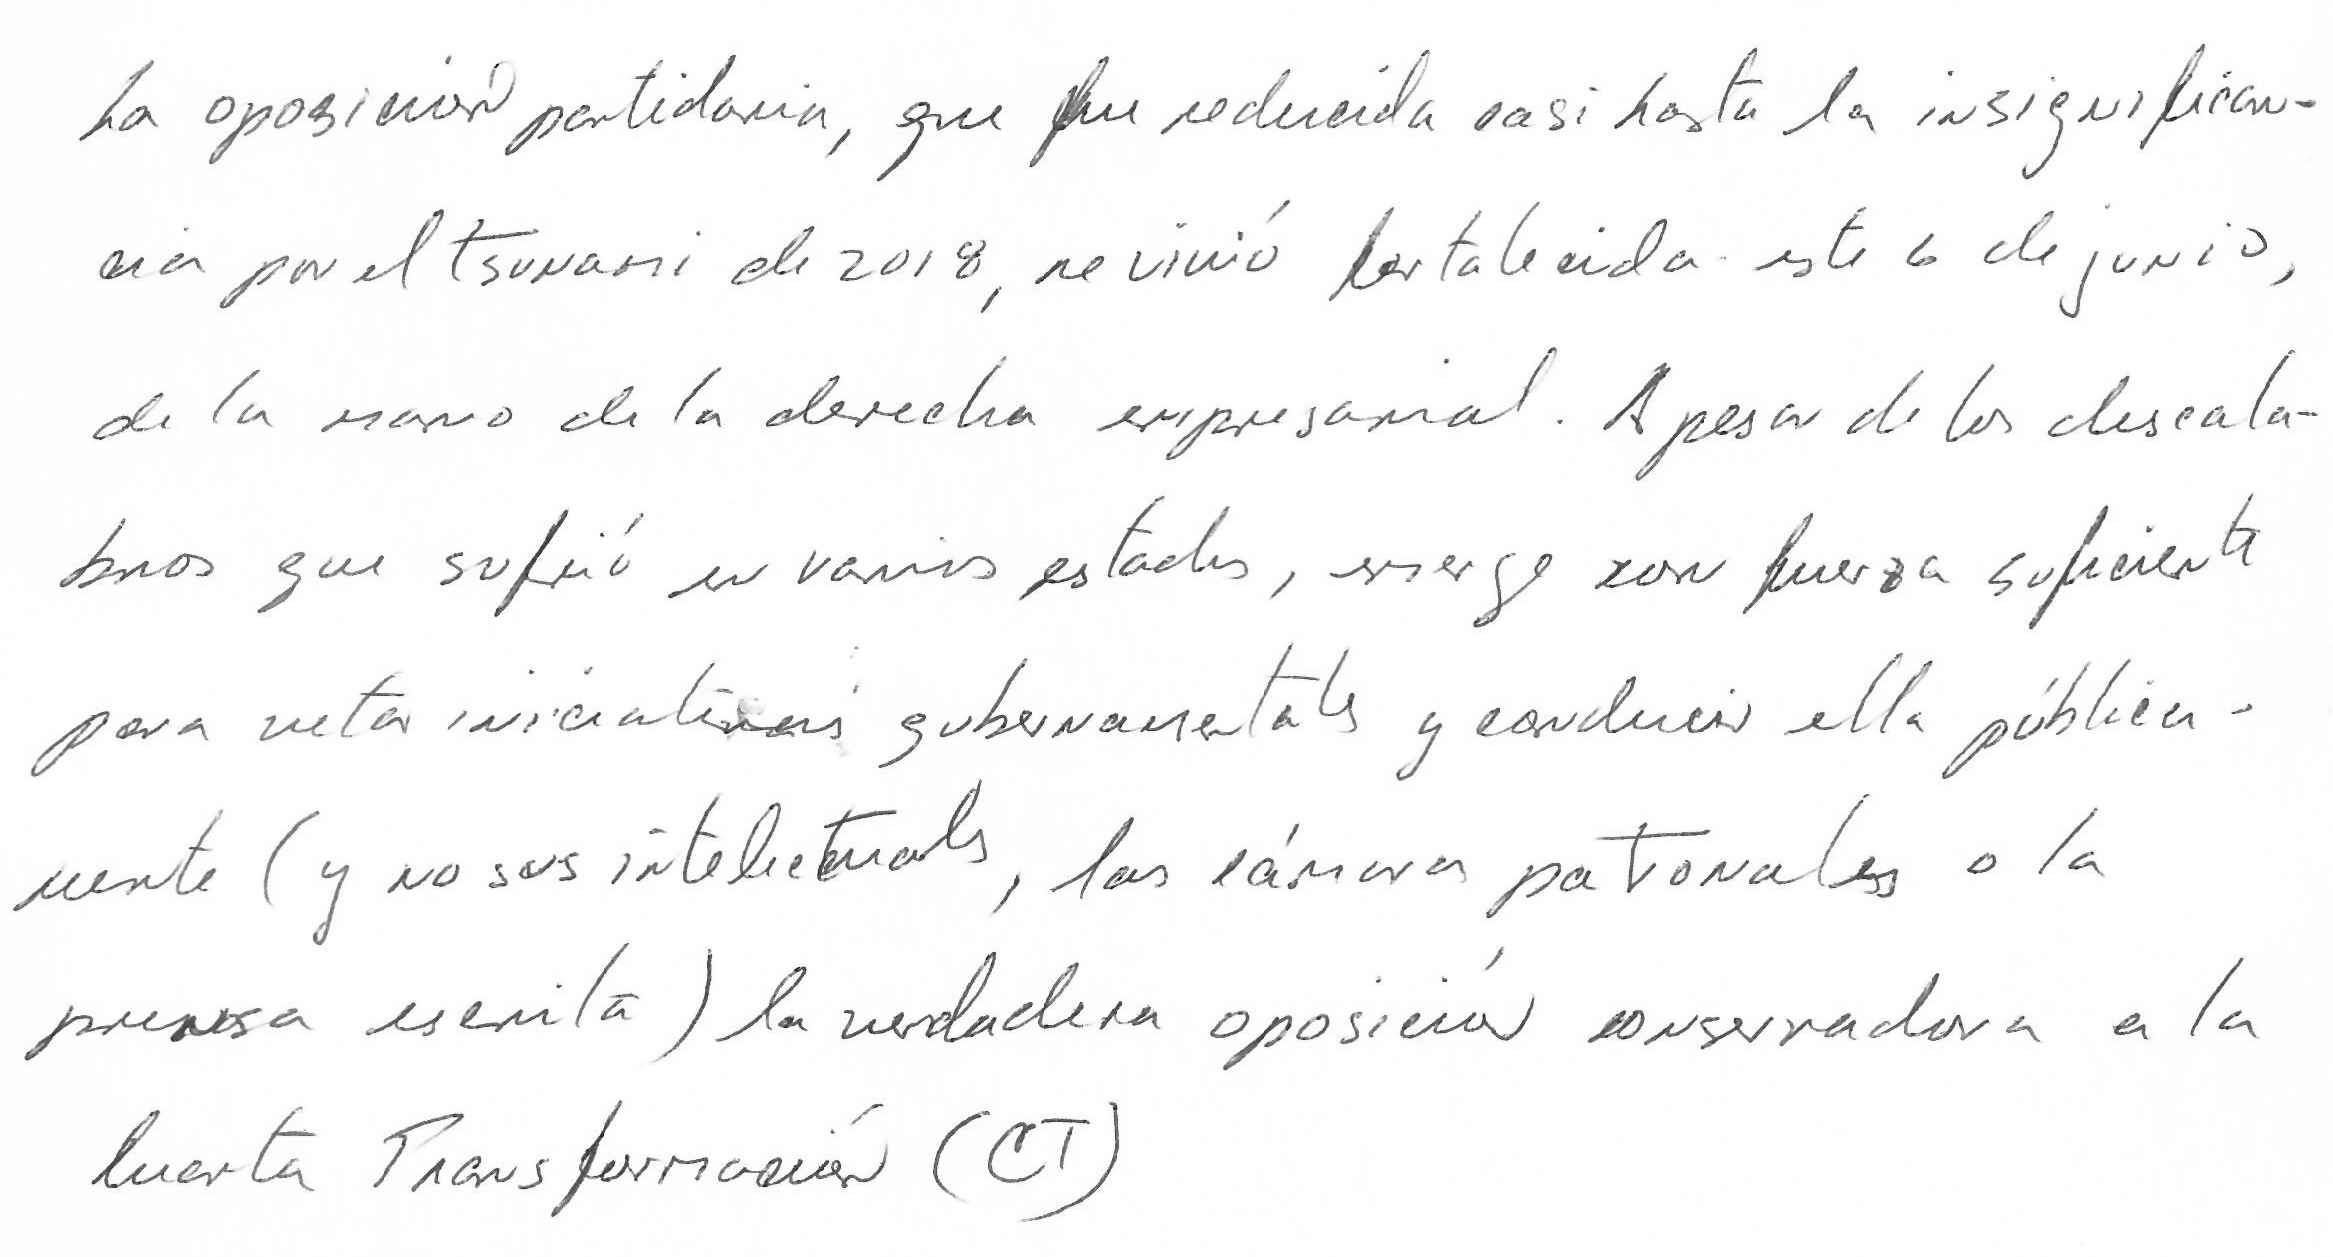 La oposición partidaria, que fue reducida casi hasta la insignifican-
cia por el tsunami de 2018, revivió fortalecida este 6 de junio,
de la mano de la derecha empresarial. A pesar de los descala-
bros que sufrió en varios estados, emerge con fuerza suficiente
para vetar iniciativas gubernamentales y conducir ella pública-
mente (y no sus intelectuales, las cámaras patronales o la
prensa escrita) la verdadera oposición conservadora a la
Cuarta Transformación (CT)